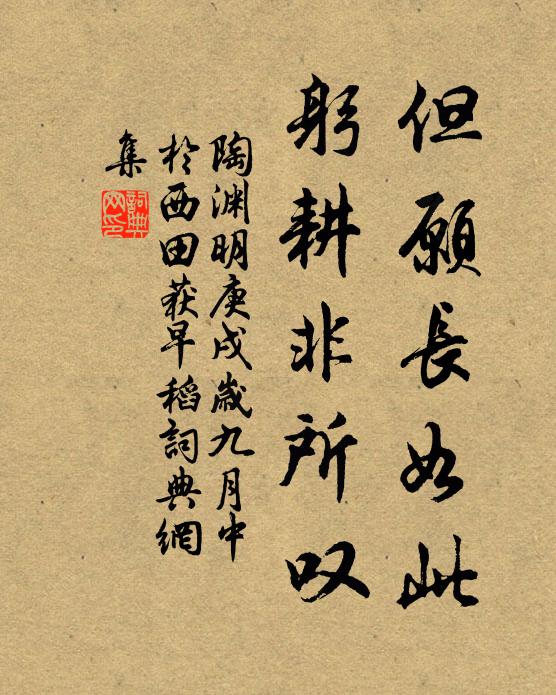 但願長如此
躬耕非所叹
陶淵明庚戌歲九月中
於西田获早稻詞典網
集
詞典
网印